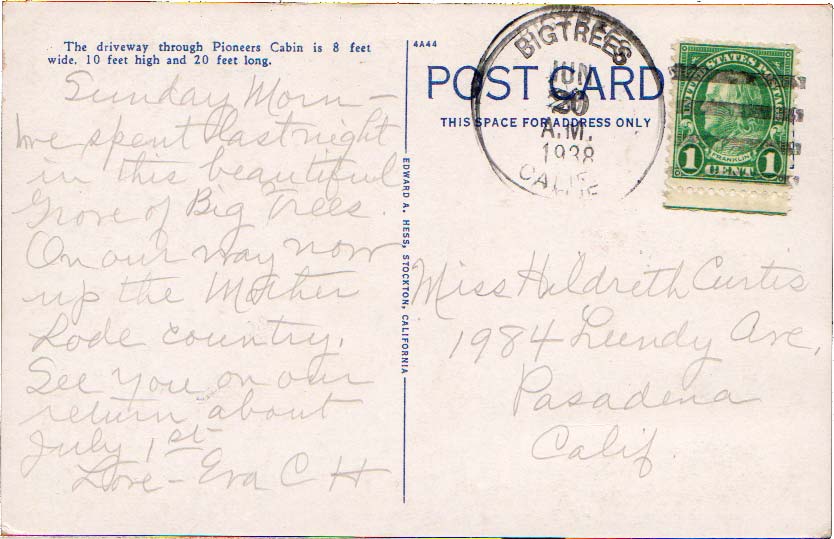 The driveway through Pioneers Cabin is 8 feet
wide, 10 feet high and 20 feet long.
Sunday Morn –
We spent last night
in this beautiful
Grove of Big Trees.
On our way now
up the Mother
Lode country.
See you on our
return about
July 1st
Love – Eva C H
EDWARD A. HESS, STOCKTON, CALIFORNIA
4A44
POST CARD
THIS SPACE FOR ADDRESS ONLY
BIGTREES
JUN
20
A.M.
1938
CALIF
UNITED STATES POSTAGE
FRANKLIN
1 CENT 1
Miss Hildreth Curtis
1984 Lundy Ave,
Pasadena
Calif.